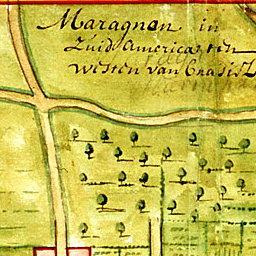 Maragnon in
Zuid America ten
westen van